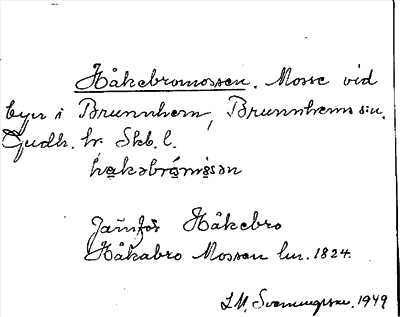 Håkebromossen. Mosse vid
byn i Brunnhem, Brunnhems sn.
Gudh. hr. Skb. l.
håkəbrómåsən
Jämför Håkebro
Håkabro Mossen lm. 1824.
1949